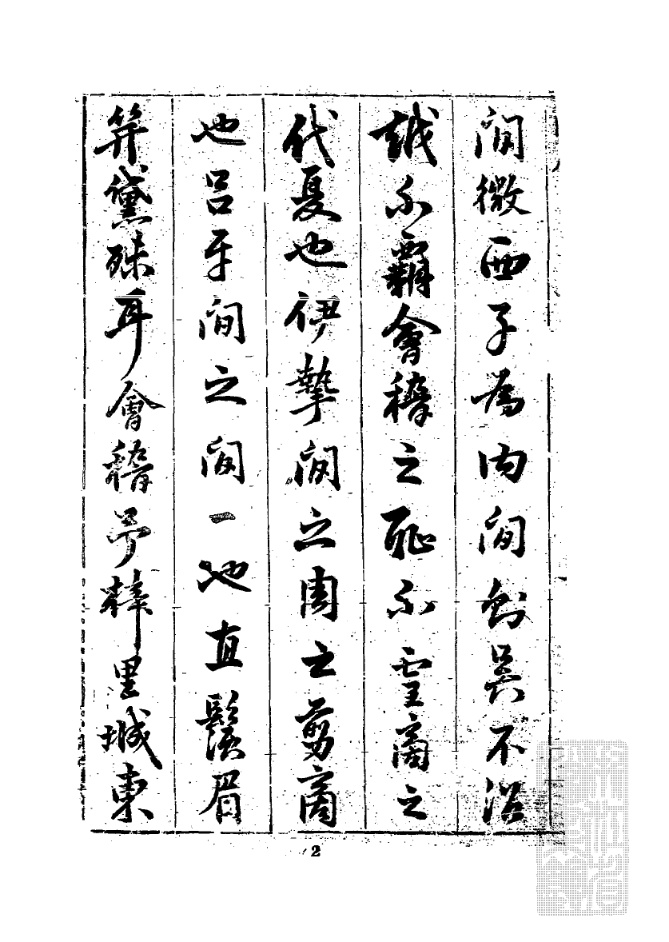 間微西子為內間則吳不沼
越不霸會稽之恥不雪商之
代夏也伊摯間之周之剪商
也呂牙間之間一也直鬚眉
笄黛殊耳會稽苧蘿里城東
2